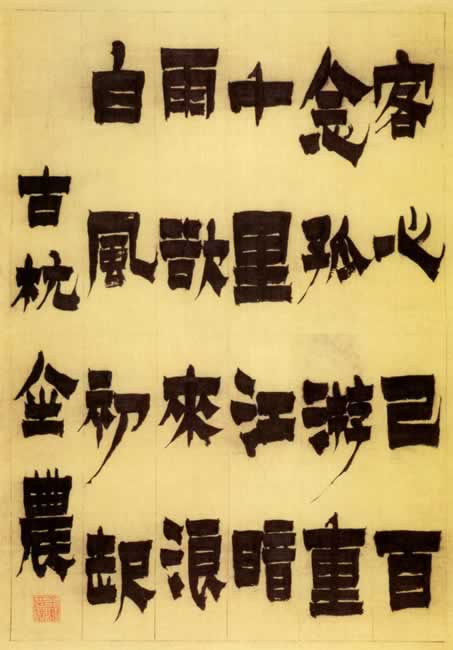 客心已百
念孤游重
千里江暗
雨歡來浪
白風初起
古杭金農